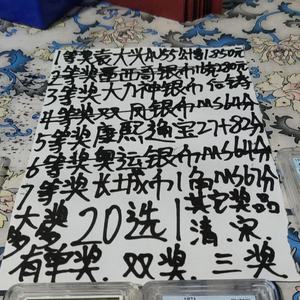 1等奖袁大头AU55公博1850元
2等奖墨西哥银币15克230元
3等奖大力神银币 后铸
4等奖双凤银币MS64分
5等奖康熙通宝27+82分
6等奖奥运银币MS64分
7等奖长城币1角MS67分
大奖 20选1 其它奖品
多多 清.宋
有单奖.双奖.三奖